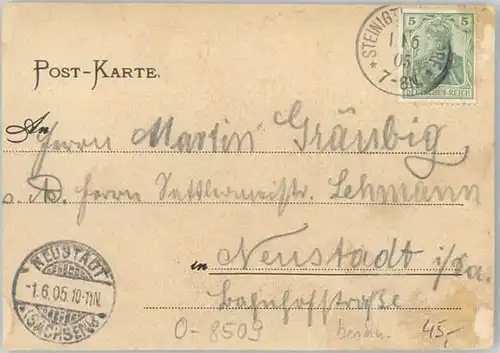 5 5
DEUTSCHES REICH
STEINIGT
1.6
05
7-8N.
POST-KARTE.
An Herrn Martin Gräubig
Herrn Sattlermeistr. Lehmann
in Neustadt i/Sa.
Bahnhofstraße
NEUSTADT
-1.6.05.10-11N.
(SACHSEN)
O-8509
45,-